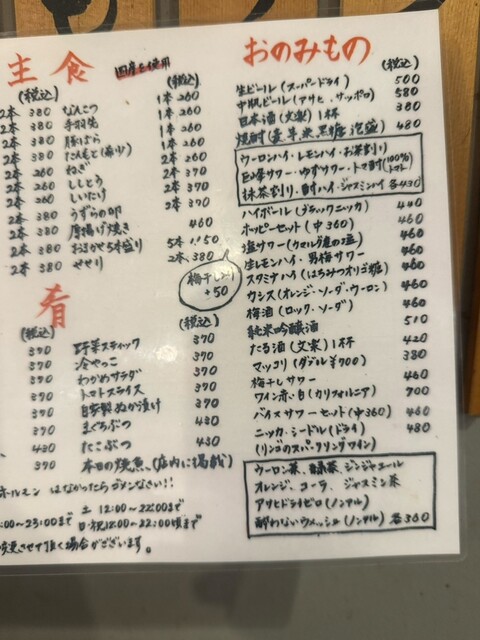 主食 国産を使用
(税込) (税込)
2本 380 なんこつ 1本 260
2本 380 手羽先 1本 260
2本 380 豚ばら 1本 260
2本 380 たんもと(希少) 1本 260
2本 260 ねぎ 2本 370
2本 260 ししとう 2本 370
2本 260 しいたけ 2本 370
2本 380 うずらの卵
2本 380 厚揚げ焼き 460
2本 380 おまかせ5本盛り 5本 1,150
2本 380 せせり 2本 380
梅干し
+50
肴
(税込) (税込)
370 野菜スティック 370
370 冷やっこ 370
370 わかめサラダ 370
370 トマトスライス 370
370 自家製ぬか漬け 370
370 まぐろぶつ 430
430 たこぶつ 430
370 本日の焼魚、(店内に掲載)
ホルモン はなかったらゴメンなさい!!
土 12:00〜22:00まで
:00〜23:00まで 日・祝12:00〜22:00頃まで
変更させて頂く場合がございます。
おのみもの (税込)
生ビール(スーパードライ) 500
中瓶ビール(アサヒ、サッポロ) 580
日本酒(文楽)1杯 380
焼酎(麦 芋 米 黒糖 泡盛) 480
ウーロンハイ・レモンハイ・お茶割り
巨峰サワー・ゆずサワー・トマ酎(100%トマト)
抹茶割り・酎ハイ・ジャスミンハイ 各430
ハイボール(ブラックニッカ) 440
ホッピーセット(中360) 460
塩サワー(カマルグ産の塩) 460
生レモンハイ・男梅サワー 460
スタミナハイ(はちみつオリゴ糖) 460
カシス(オレンジ・ソーダ・ウーロン) 460
梅酒(ロック・ソーダ) 460
純米吟醸酒 510
たる酒(文楽)1杯 420
マッコリ(ダブル¥700) 380
梅干しサワー 460
ワイン赤・白(カリフォルニア) 700
バイスサワーセット(中360) 460
ニッカ・シードル(ドライ) 480
(リンゴのスパークリングワイン)
ウーロン茶、緑茶、ジンジャエール
オレンジ、コーラ、ジャスミン茶
アサヒドライゼロ(ノンアル)
酔わないウメッシュ(ノンアル) 各360